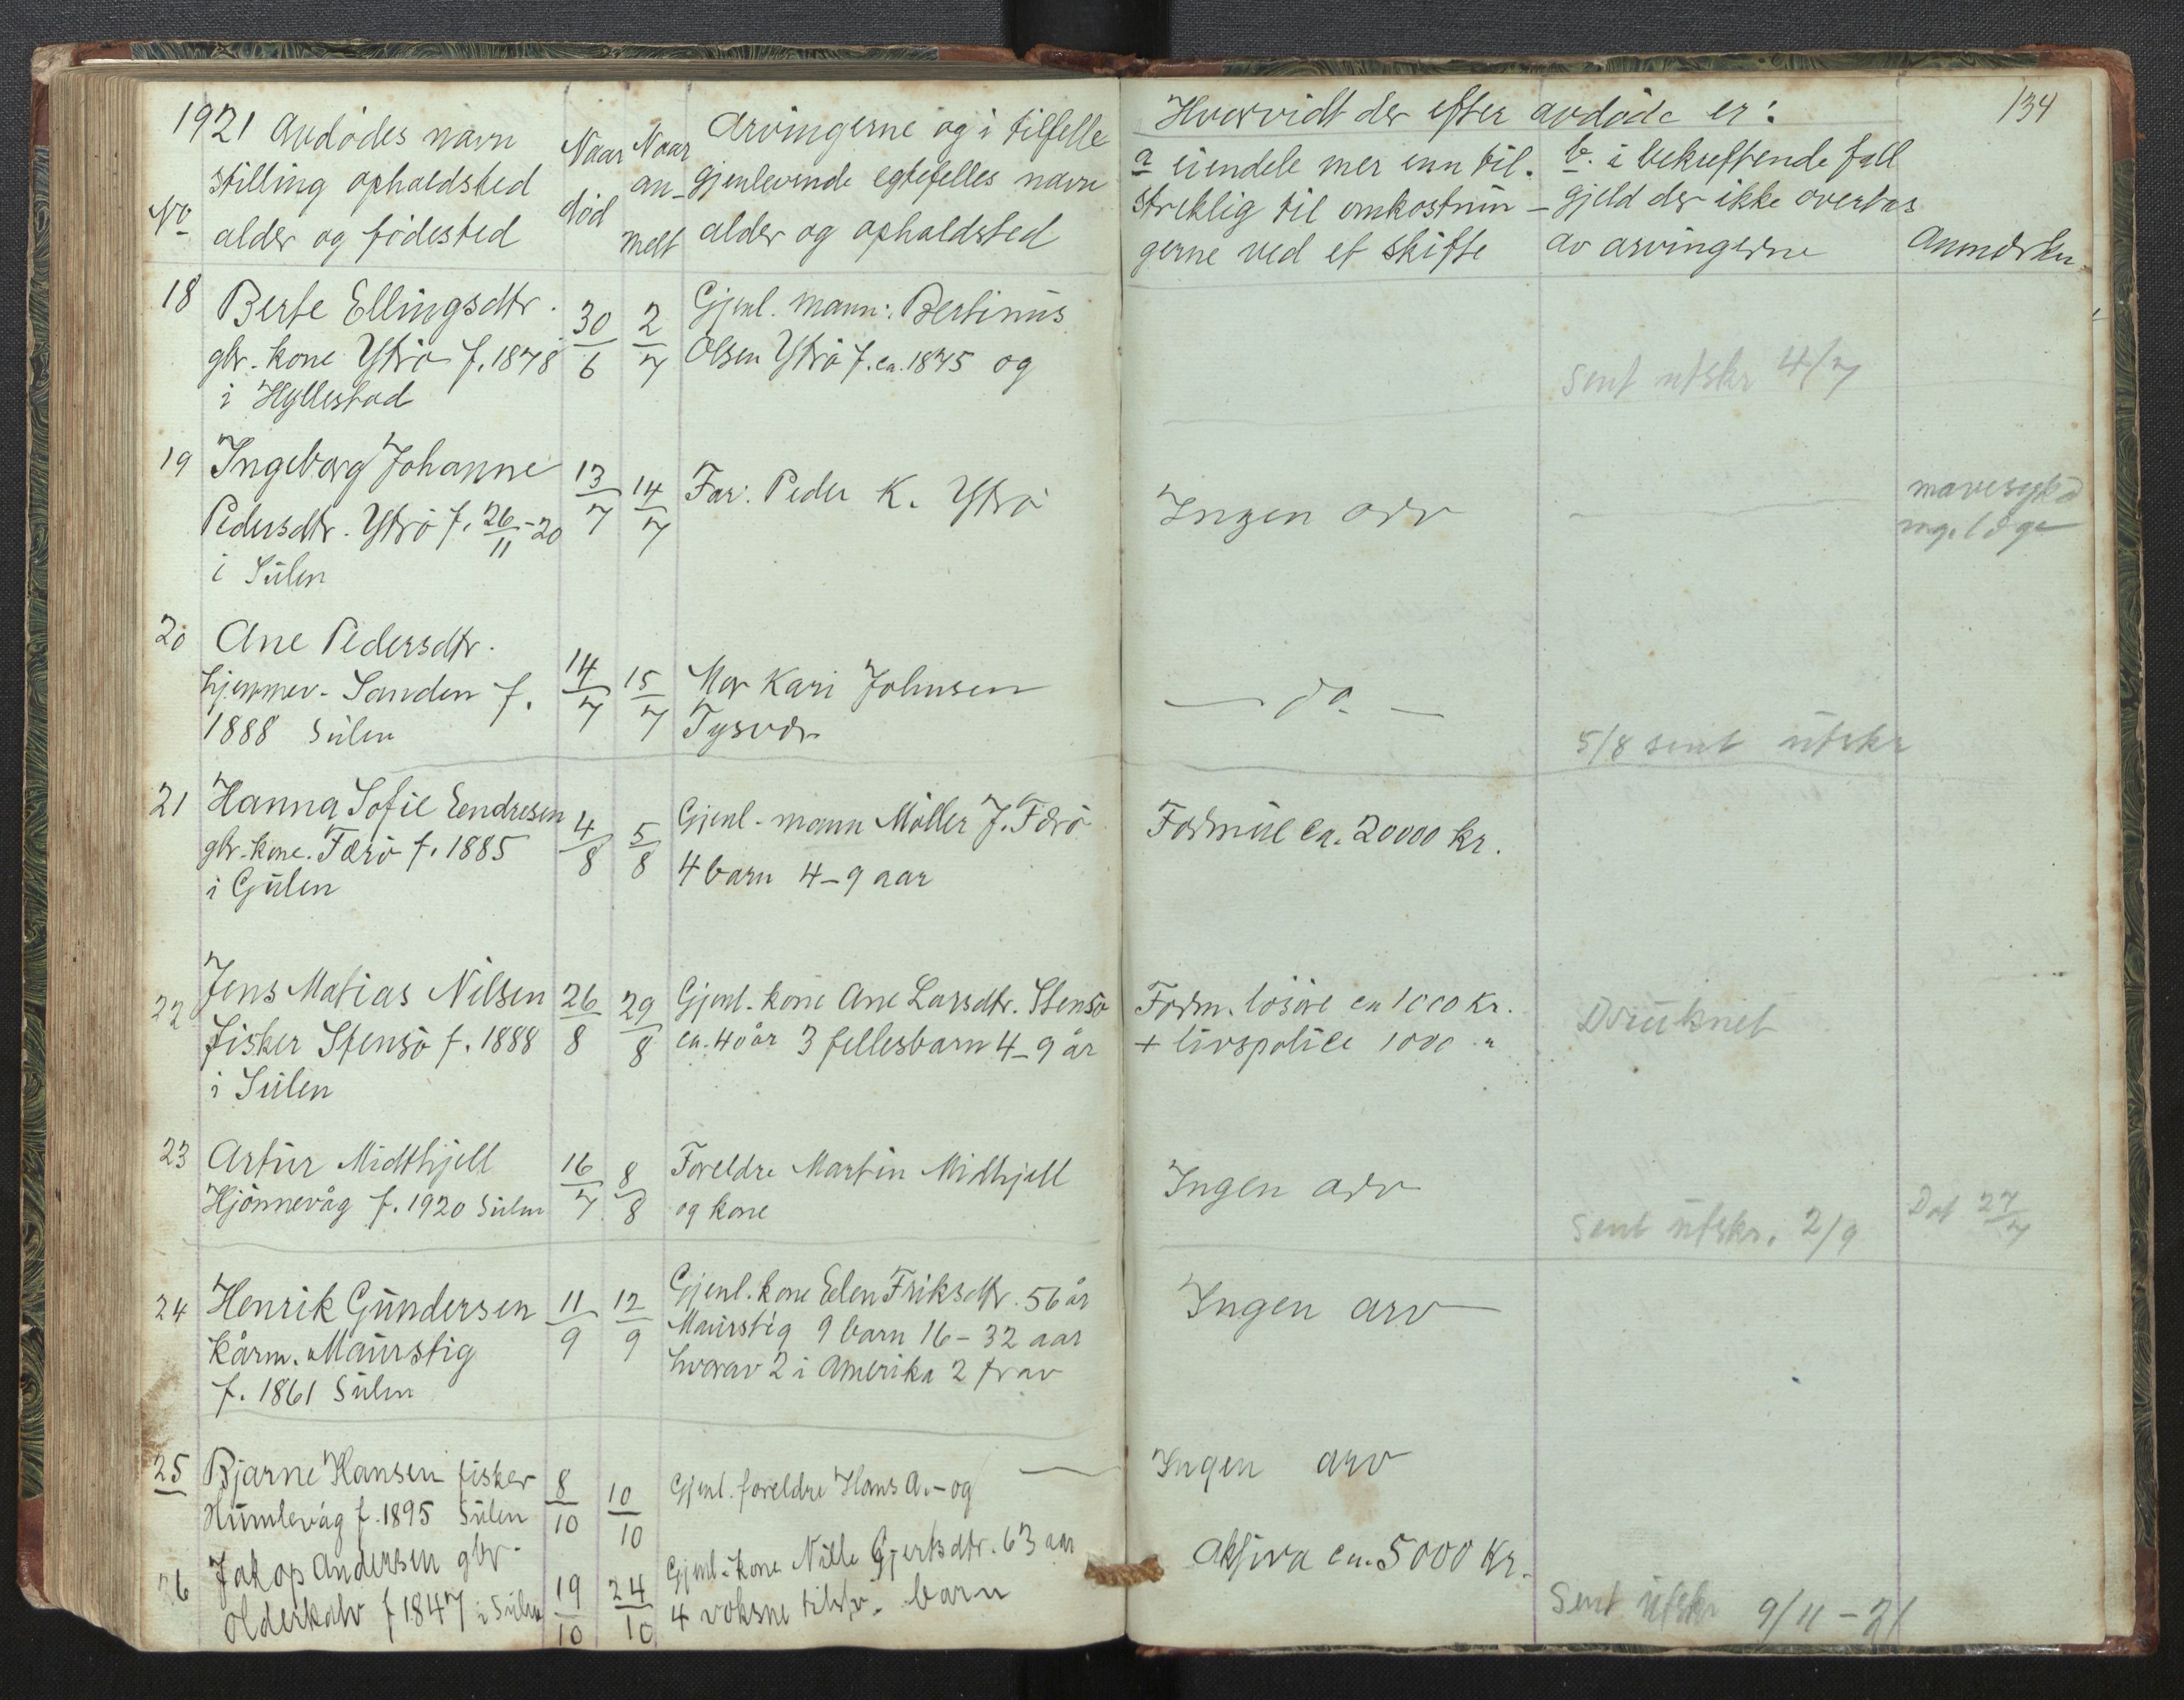 1921 Avdødes navn
stilling opholdsted
No alder og fødested
Naar
død
Naar
an-
meldt
Arvingerne og i tilfelle
gjenlevende egtefelles navn
alder og opholdsted
Hvorvidt der efter avdøde er:
134
a eiendele mer enn til-
streklig til omkostnin-
gerne ved et skifte
b. i bekreftende fall
gjeld der ikke overtas
av arvingerne
Anmerkn.
18 Berte Ellingsdtr. 30/6 2/7 Gjenl. mann: Bertinus
gbr. kone Ytrö f. 1878 Olsen Ytrö f. ca. 1875 og
i Hyllestad
sent utskr 4/7
19 Ingeborg Johanne 13/7 14/7 Far: Peder K. Ytrö Ingen arv —
Pedersdtr. Ytrö f. 26/11-20
i Sulen
20 Ane Pedersdtr.
hjemmev. Sanden f. 14/7 15/7 Mor Kari Johnsen — do —
1888 Sulen Tysvær
5/8 sent utskr
21 Hanna Sofie Eendresen 4/8 5/8 Gjenl. mann Möller J. Færö Formue ca. 20000 kr.
gbr. kone. Færö f. 1885 4 barn 4-9 aar
i Gulen
22 Jens Matias Nilsen 26/8 29/8 Gjenl. kone Ane Larsdtr. Stensö Form. lösöre ca 1000 Kr. Druknet
fisker Stensö f. 1888 ca. 40 år 3 fellesbarn 4-9 år + livspolice 1000 "
i Sulen
23 Artur Midthjell 16/7 8/8 Foreldre Martin Midhjell Ingen arv
Hjönnevåg f. 1920 Sulen og kone
sent utskr. 2/9 Dat 27/7
24 Henrik Gundersen 11/9 12/9 Gjenl. kone Elen Eriksdtr. 56 år Ingen arv
kårm. Maurstig Maurstig 9 barn 16-32 aar
f. 1861 Sulen hvorav 2 i Amerika 2 frav
25 Bjarne Hansen fisker 8/10 10/10 Gjenl. foreldre Hans A. - og — Ingen arv
Humlevåg f. 1895 Sulen
26 Jakop Andersen gbr. 19/10 24/10 Gjenl. kone Nille Gjertsdtr. 63 aar Aktiva ca. 5000 Kr.
Olderkalv f 1847 i Sulen 4 voksne tilstv. barn
Sent utskr 9/11-21